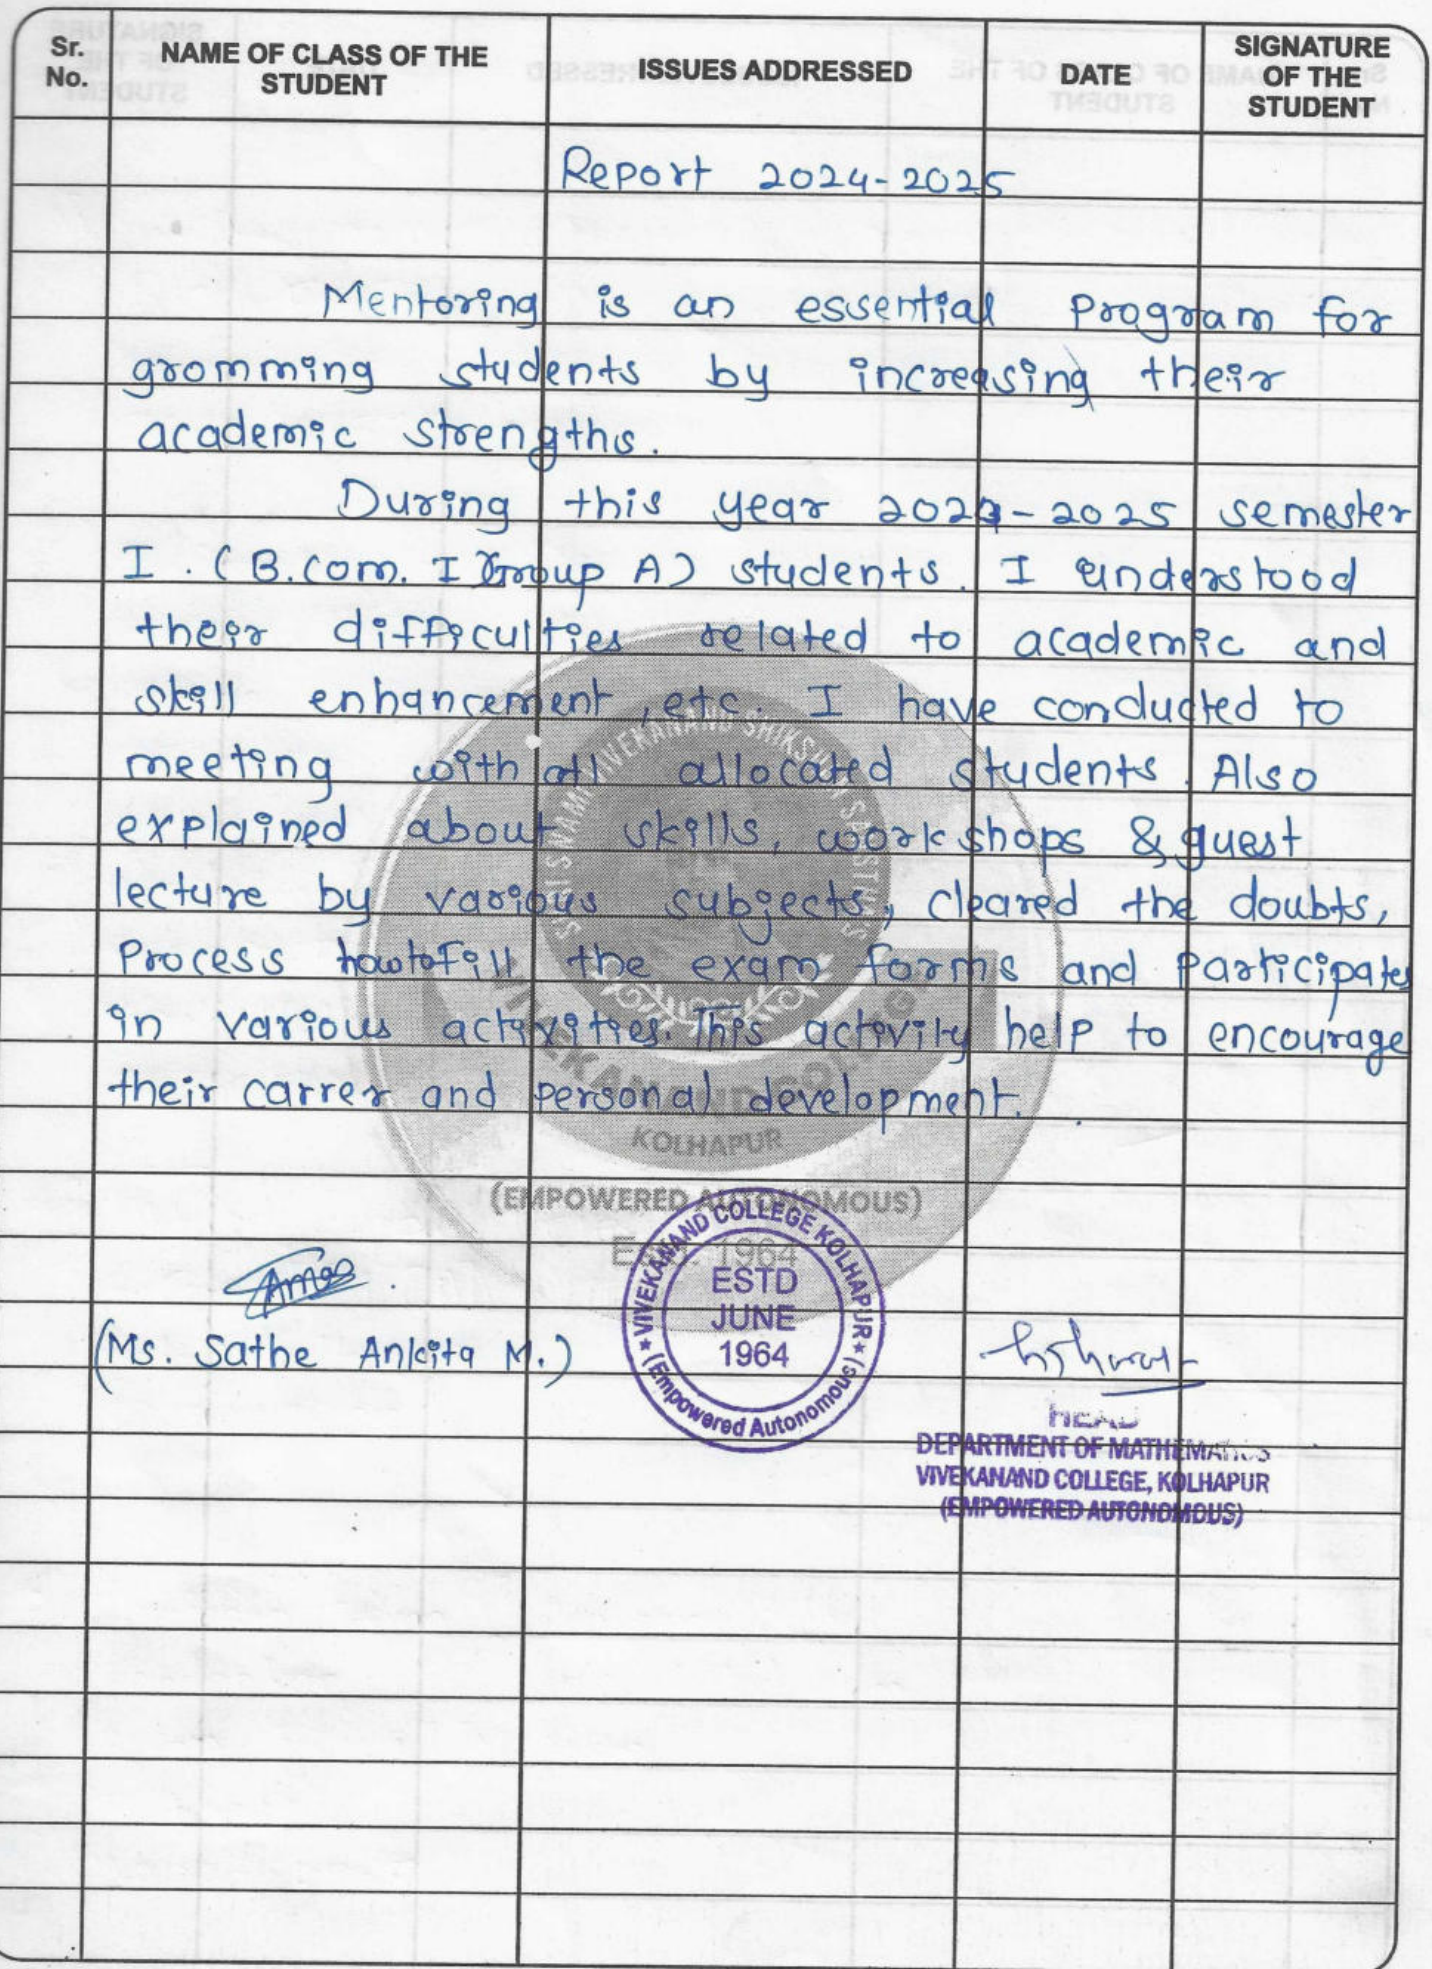 Sr. No.
NAME OF CLASS OF THE STUDENT
ISSUES ADDRESSED
DATE
SIGNATURE OF THE STUDENT
Report 2024-2025
Mentoring is an essential Program for
gromming students by increasing their
academic strengths.
During this year 2024-2025 semester
I. (B.com. I Group A) students. I understood
their difficulties related to academic and
skill enhancement, etc. I have conducted to
meeting with all allocated students. Also
explained about skills, workshops & guest
lecture by various subjects, cleared the doubts,
Process how to fill the exam forms and Participate
in various activities. This activity help to encourage
their carrer and personal development.
SHRI SWAMI VIVEKANAND SHIKSHAN SANSTHA'S
VIVEKANAND COLLEGE
KOLHAPUR
(EMPOWERED AUTONOMOUS)
1964
(Ms. Sathe Ankita M.)
VIVEKANAND COLLEGE KOLHAPUR
ESTD
JUNE
1964
(Empowered Autonomous)
HEAD
DEPARTMENT OF MATHEMATICS
VIVEKANAND COLLEGE, KOLHAPUR
(EMPOWERED AUTONOMOUS)